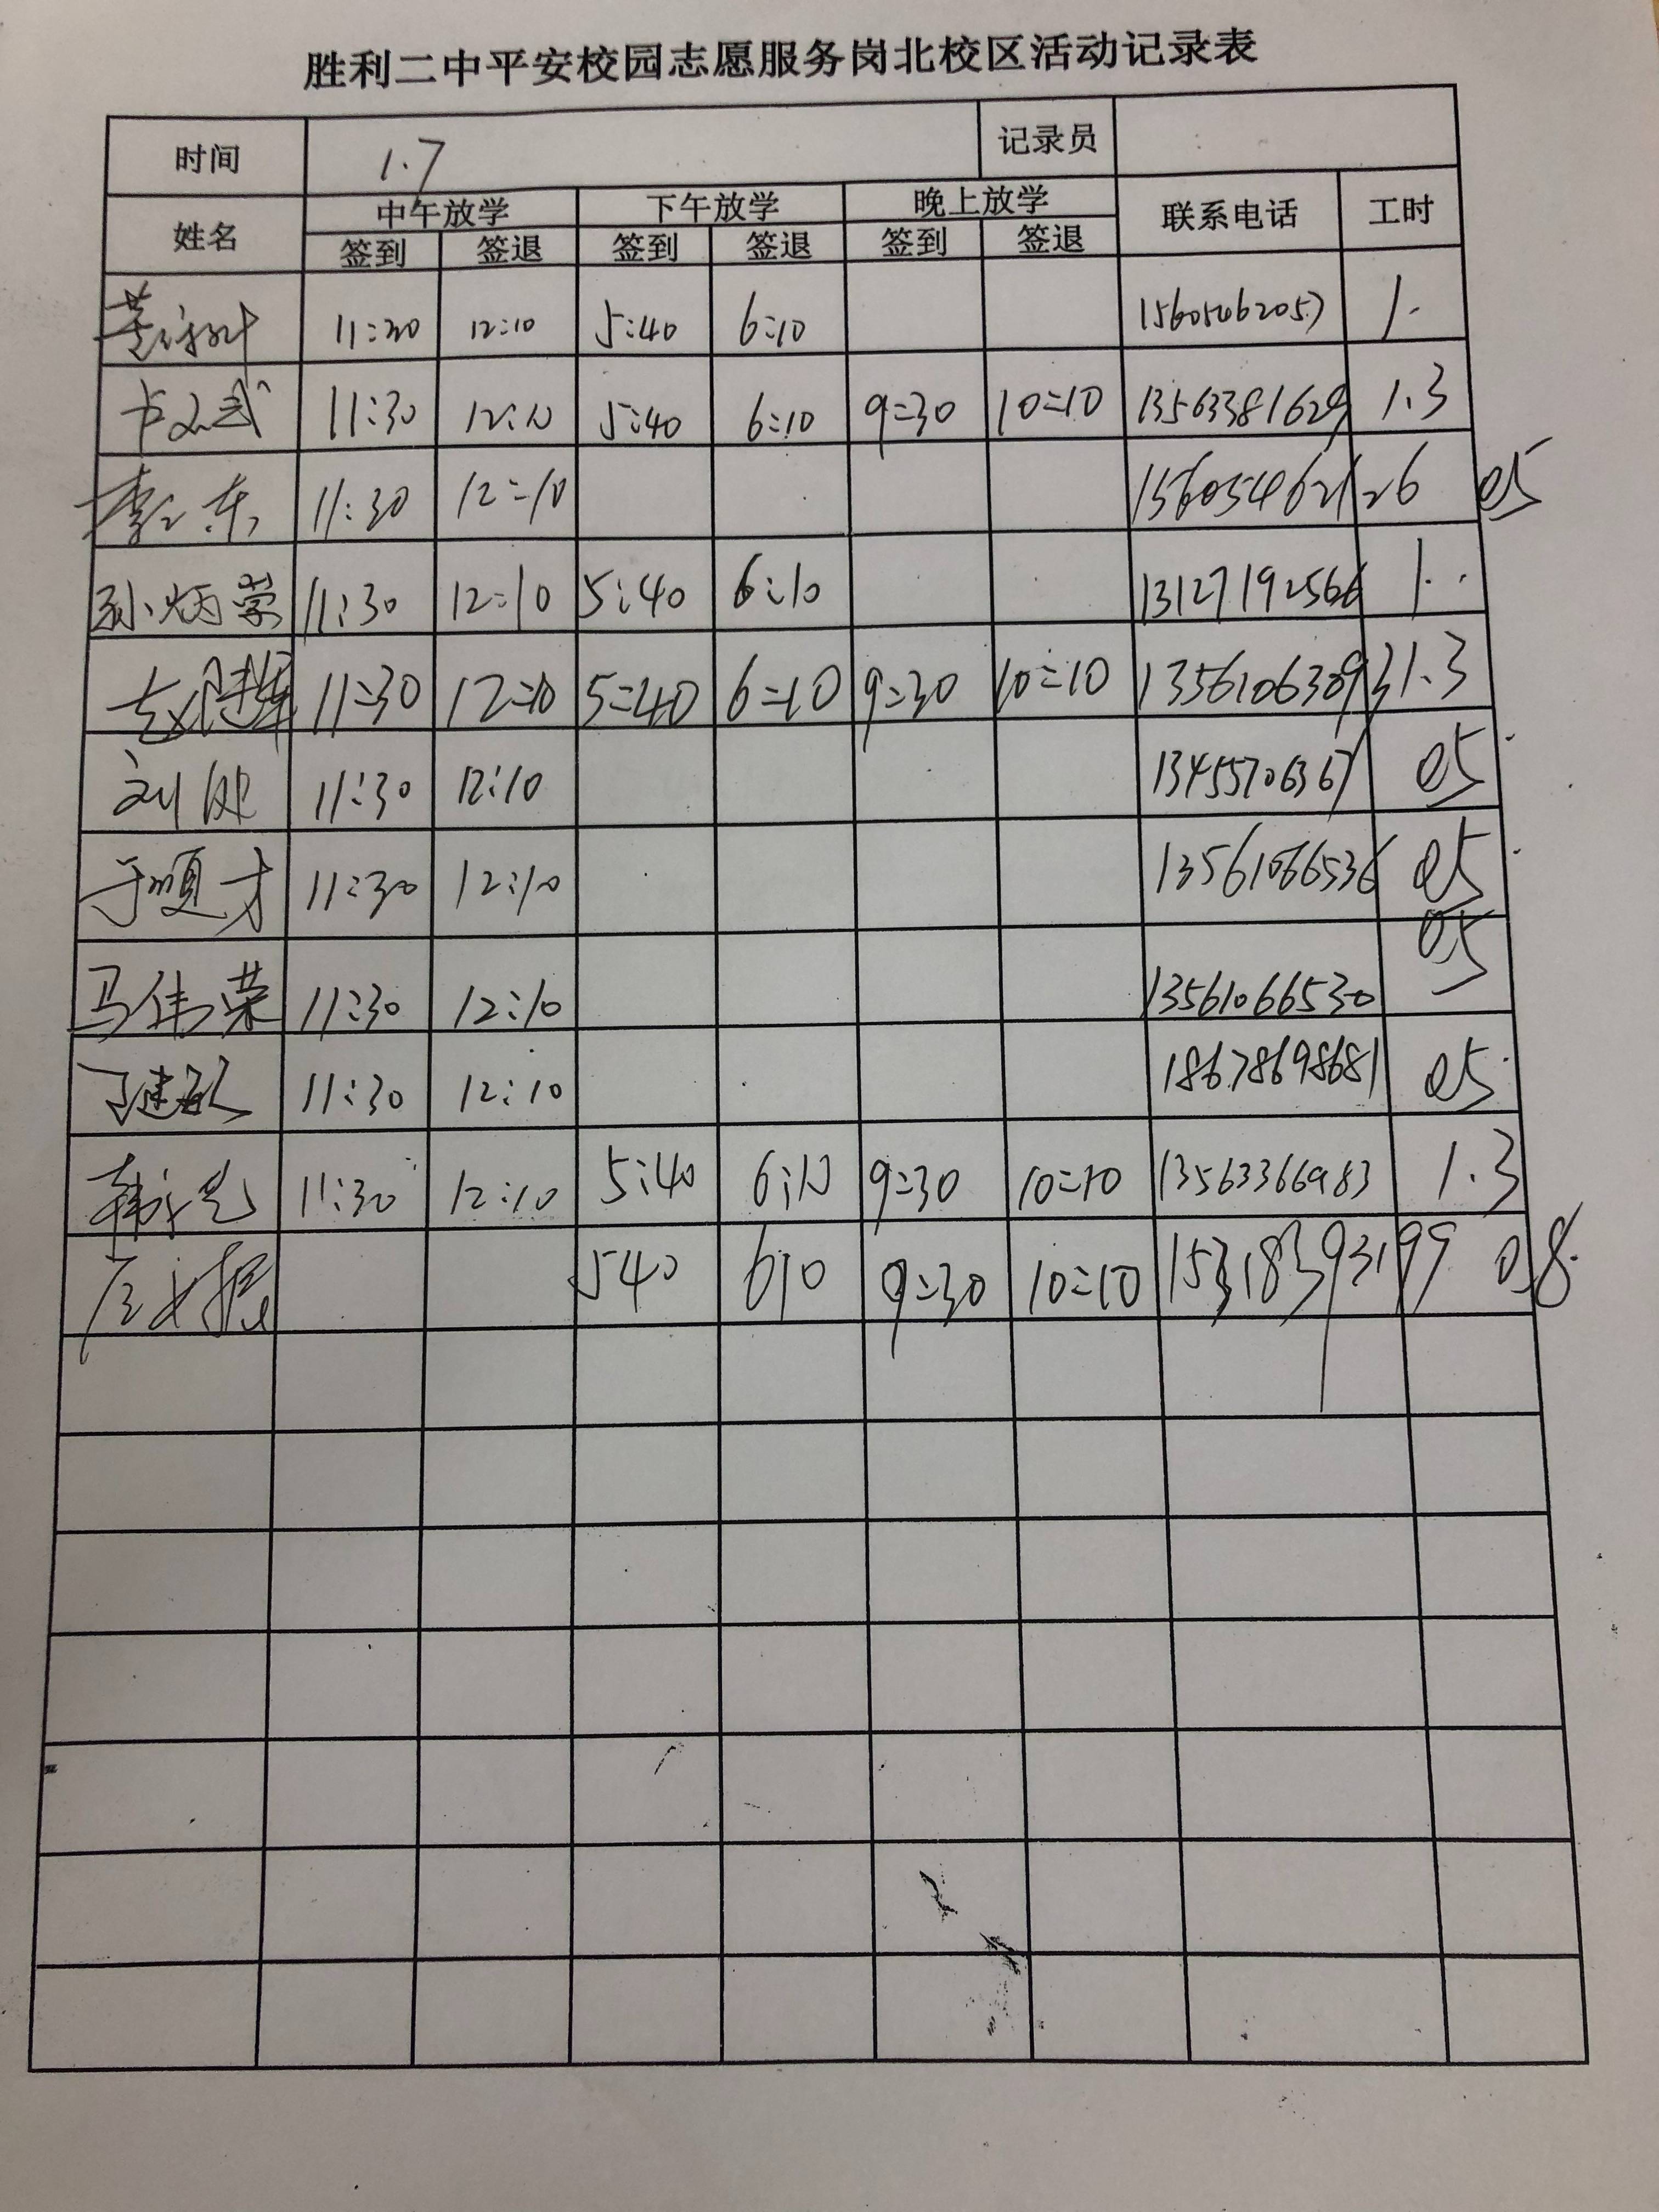 胜利二中平安校园志愿服务岗北校区活动记录表
时间 1.7 记录员
姓名 中午放学 下午放学 晚上放学 联系电话 工时
签到 签退 签到 签退 签到 签退
11:30 12:10 5:40 6:10 15605462057 1.
卢文武 11:30 12:10 5:40 6:10 9:30 10:10 13563381629 1.3
李东 11:30 12:10 15605462126 0.5
孙炳荣 11:30 12:10 5:40 6:10 13127192566 1.
11:30 12:10 5:40 6:10 9:30 10:10 13561063093 1.3
刘 11:30 12:10 13455706367 0.5
于顺才 11:30 12:10 13561066536 0.5
马伟荣 11:30 12:10 13561066530 0.5
丁建敏 11:30 12:10 18678698681 0.5
韩 11:30 12:10 5:40 6:10 9:30 10:10 13563366983 1.3
540 610 9:30 10:10 15318393199 0.8